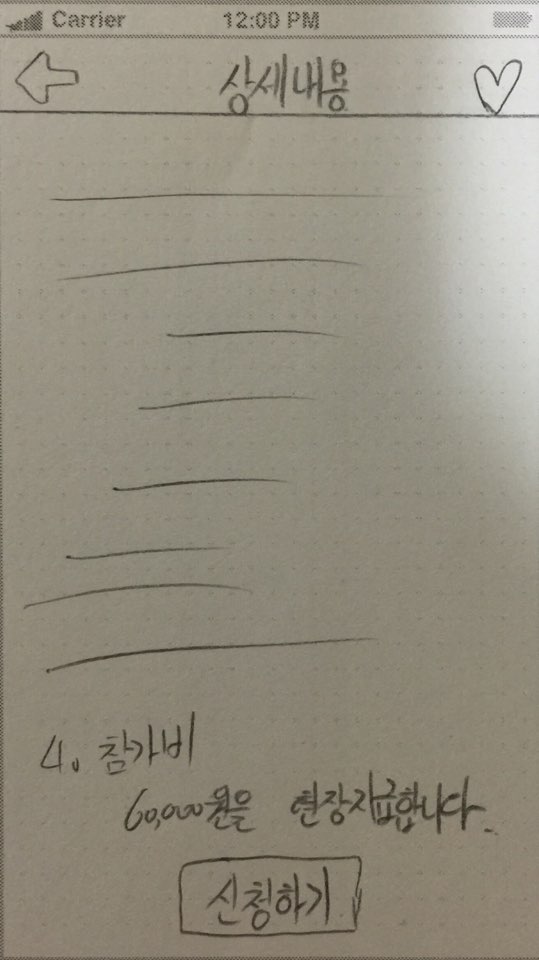 Carrier 12:00 PM
상세내용
4. 참가비
60,000원을 현장지급합니다.
신청하기